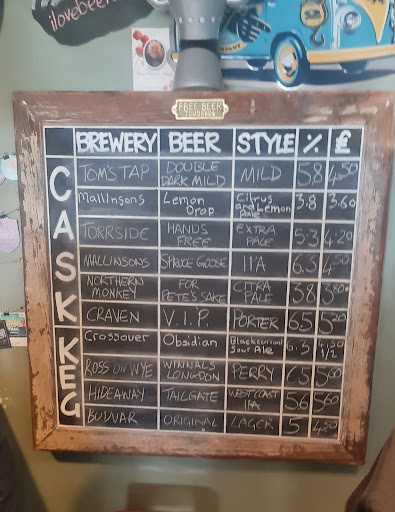 ilovebee
FREE BEER
TOMORROW
BREWERY BEER STYLE % £
CASK
TOM'S TAP DOUBLE DARK MILD MILD 5.8 4.50
Mallinsons Lemon Drop Citrus and Lemon Pale 3.8 3.60
TORRSIDE HANDS FREE EXTRA PALE 5.3 4.20
MALLINSONS SPRUCE GOOSE IPA 6.3 4.50
NORTHERN MONKEY FOR PETE'S SAKE CITRA PALE 3.8 3.80
CRAVEN V.I.P. PORTER 6.5 5.20
KEG
Crossover Obsidian Blackcurrant Sour Ale 4.50 1/2
ROSS ON WYE WINNALS LONGDON PERRY 6.5 5.00
HIDEAWAY TAILGATE WEST COAST IPA 5.6 5.60
BUDVAR ORIGINAL LAGER 5 4.50